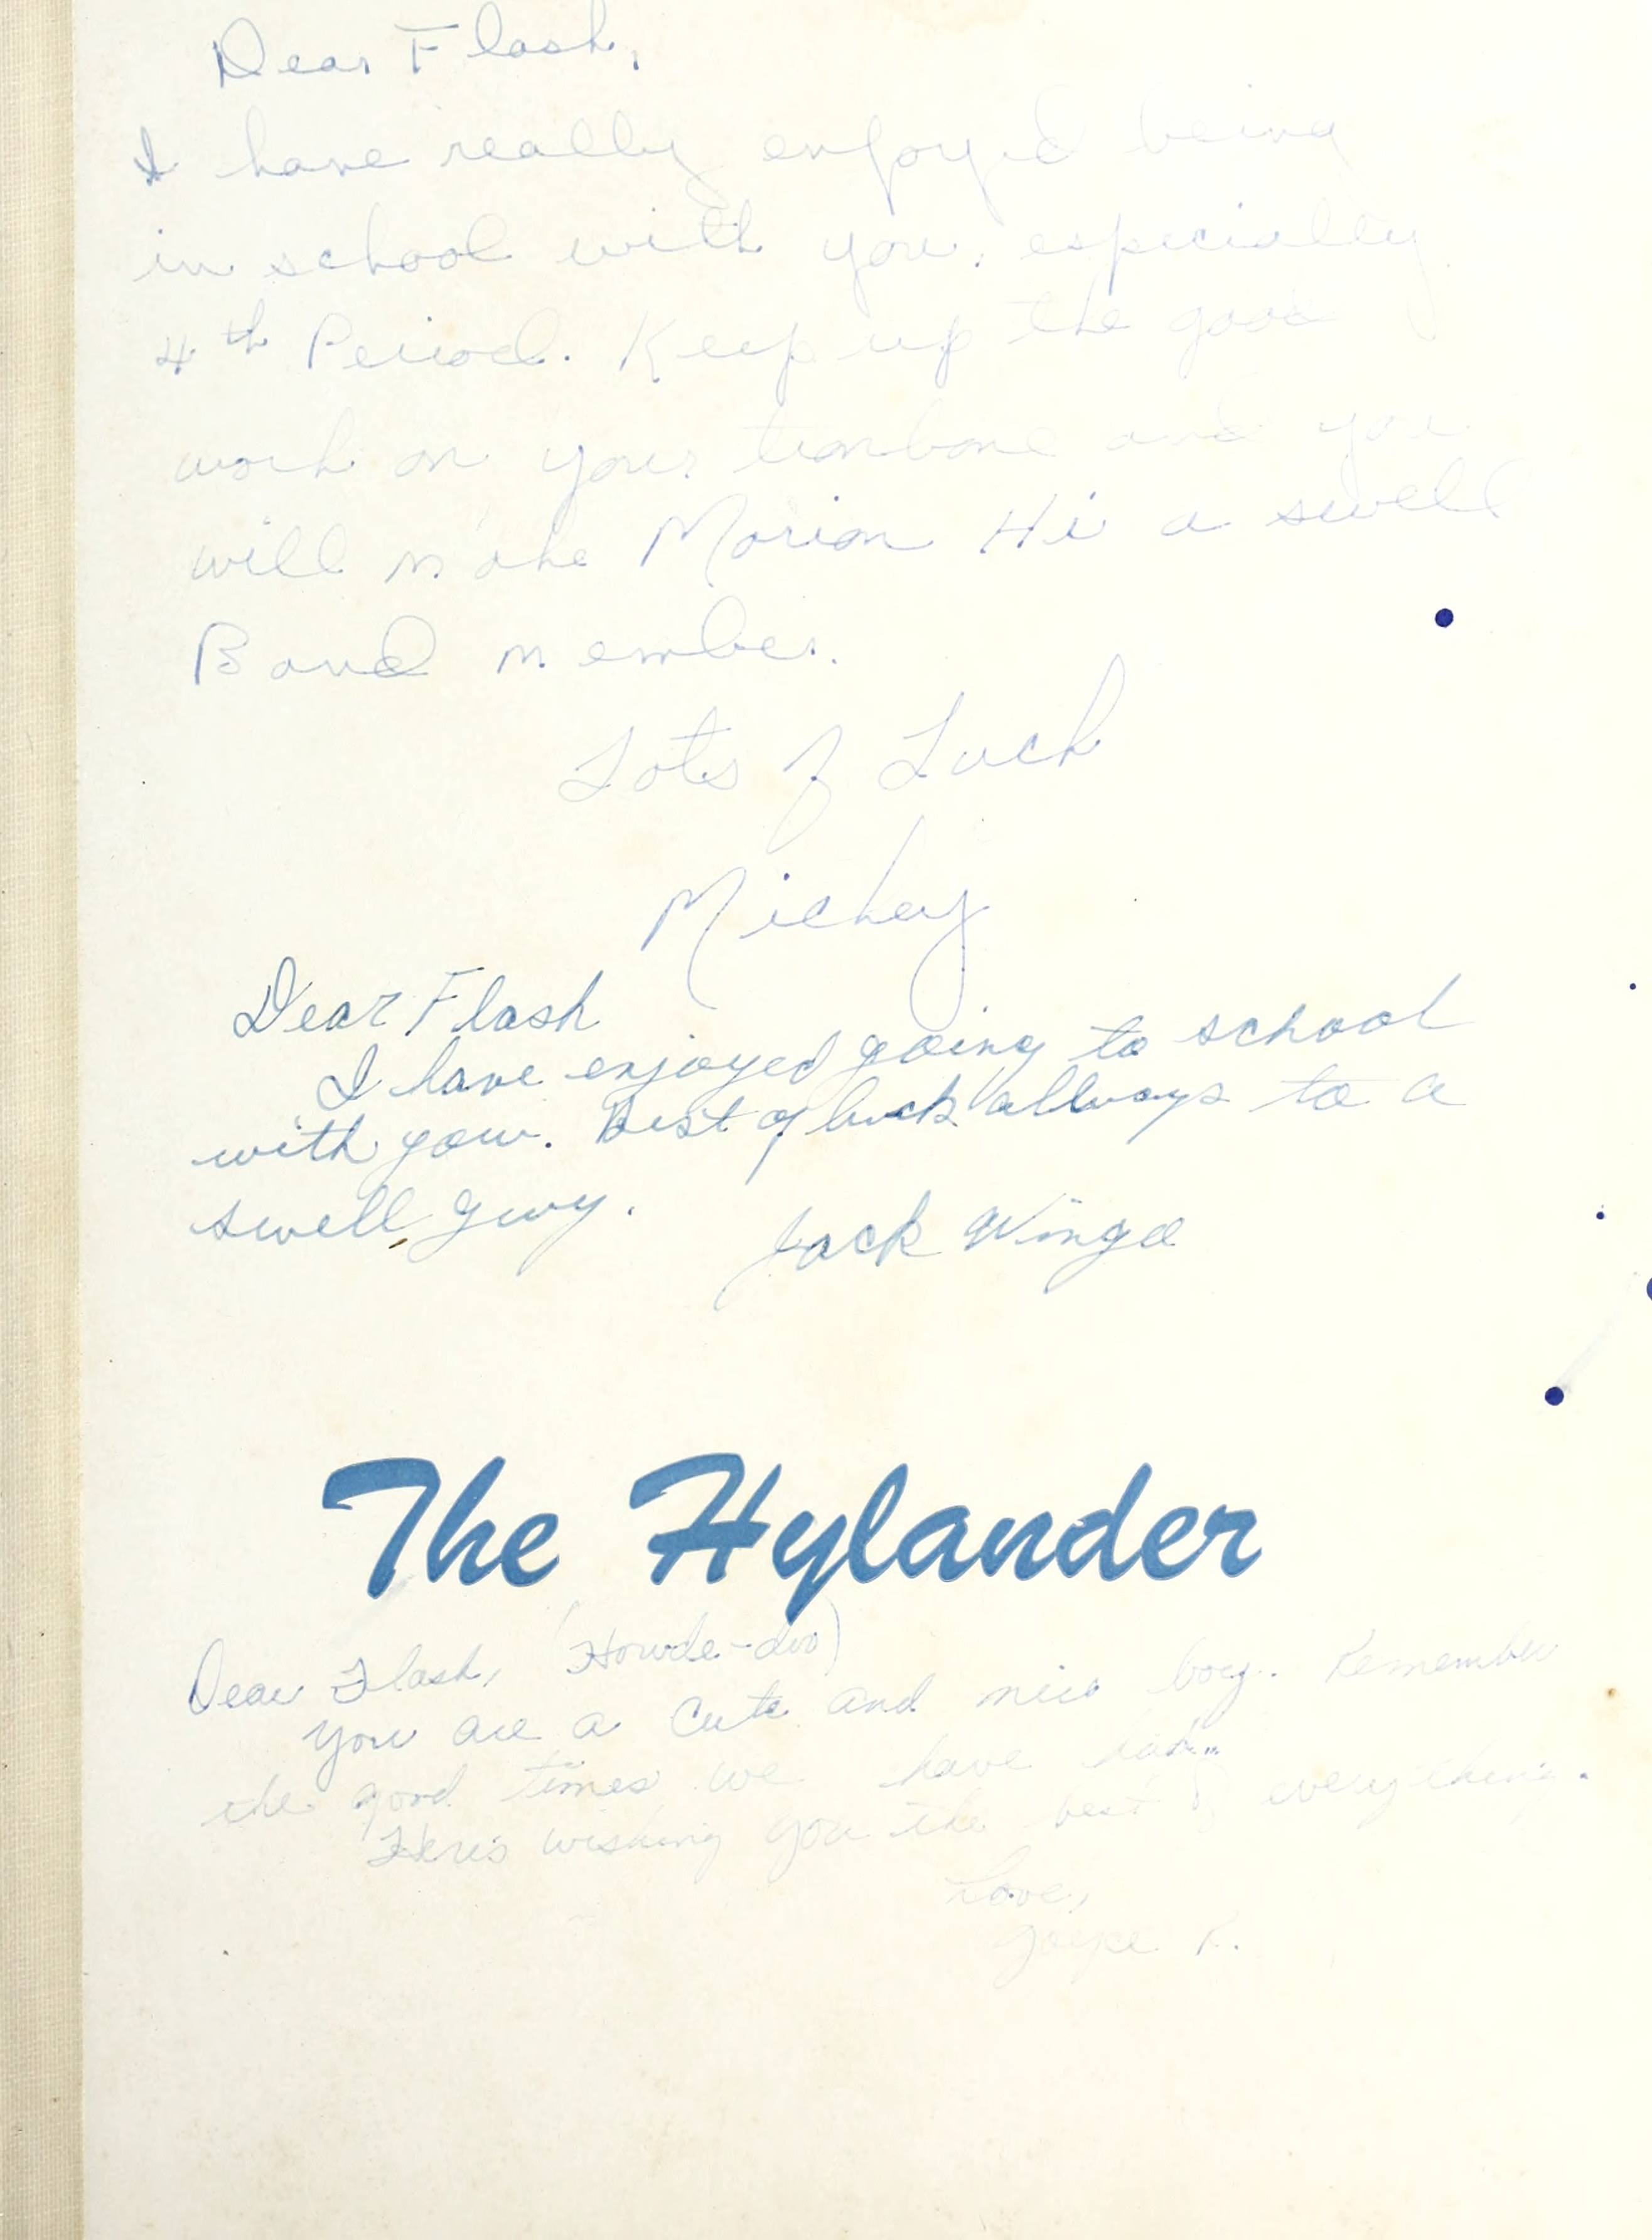 Dear Flash,
I have really enjoyed being
in school with you, especially
4th Period. Keep up the good
work on your trombone and you
will make Marion Hi a swell
Band member.
Lots of Luck
Mickey
Dear Flash
I have enjoyed going to school
with you. Best of luck allways to a
swell guy.
Jack Wingo
The Hylander
Dear Flash, (Howde-doo)
You are a cute and nice boy. Remember
the good times we have had...
Here's wishing you the best of everything.
Love,
Joyce